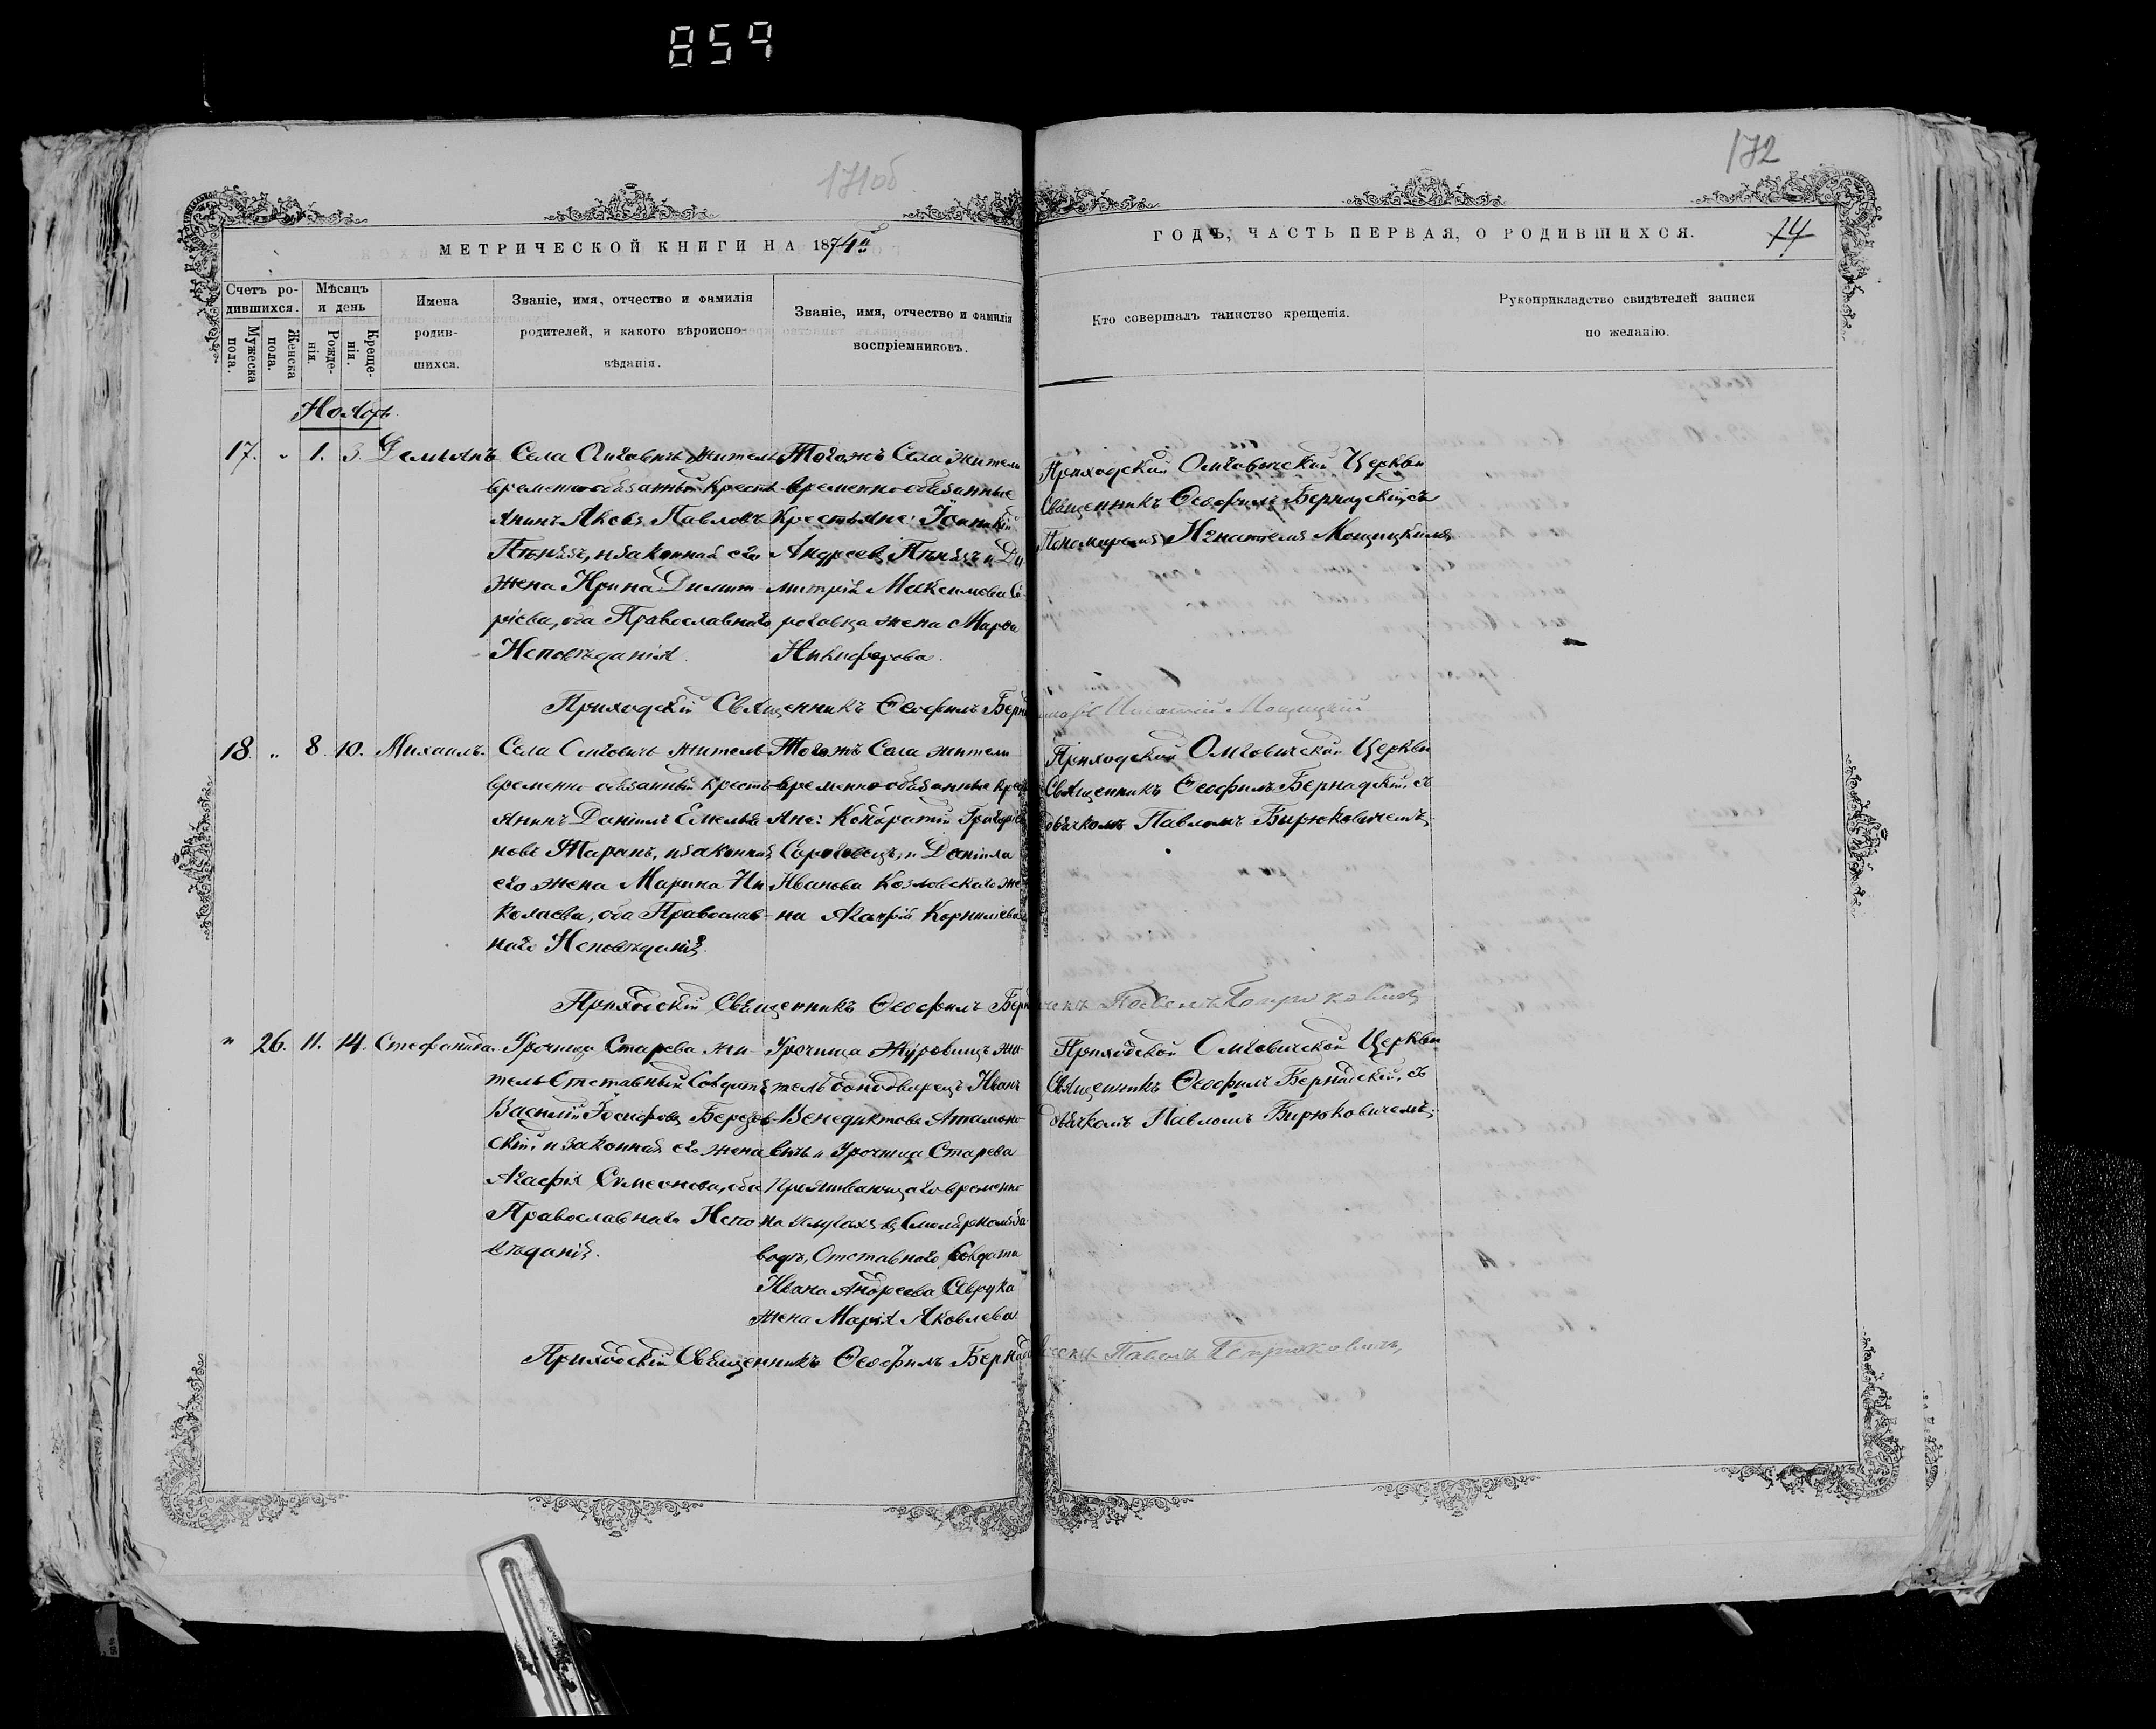 859
171об
172
МЕТРИЧЕСКОЙ КНИГИ НА 1874й
ГОДЪ, ЧАСТЬ ПЕРВАЯ, О РОДИВШИХСЯ.
14
Счетъ ро-
дившихся.
Мужеска
пола.
Женска
пола.
Мѣсяцъ
и день
Рожде-
нія.
Креще-
нія.
Имена
родив-
шихся.
Званіе, имя, отчество и фамилія
родителей, и какого вѣроиспо-
вѣданія.
Званіе, имя, отчество и фамилія
воспріемниковъ.
Кто совершалъ таинство крещенія.
Рукоприкладство свидѣтелей записи
по желанію.
Ноябрь.
17. " 1. 3. Демьянъ
Села Олговичъ житель
временнообязанный кресть-
янинъ Яковъ Павловъ
и законная его
жена Ирина Димит-
ріева, оба Православнаго
Исповѣданія.
Тогожъ Села жители
временнообязанные
Крестьяне: Іоаникій
Андреевъ и Ди-
митрія Максимова Со-
роговца жена Марфа
Никифорова.
Приходской Олговичской Церкви
Священникъ Ѳеофилъ Бернадскій, съ
Пономаремъ Игнатіемъ Мощицкимъ
Приходскій Священникъ Ѳеофилъ Берн
Игнатій Мощицкій
18. " 8. 10. Михаилъ.
Села Олговичъ житель
временно обязанный кресть-
янинъ Даніилъ Емелья-
новъ Таранъ, и законная
его жена Марина Ни-
колаева, оба Православ-
наго Исповѣданія.
Тогожъ Села жители
временнообязанные крест
яне: Кондратій Григоріев
Сороговецъ, и Даніила
Иванова Козловскаго же-
на Агафія Корниліева
Приходской Олговичской Церкви
Священникъ Ѳеофилъ Бернадскій, съ
дьячкомъ Павломъ Бирюковичемъ;
Приходскій Священникъ Ѳеофилъ Берн
Павелъ Бирюковичъ
" 26. 11. 14. Стефанида.
Урочища Старева жи-
тель Отставный Солдатъ
Василій Іосифовъ Березов-
скій, и законная его жена
Агафія Симеонова, оба
Православнаго Испо-
вѣданія.
Урочища Журовищъ жи-
тель однодворецъ Иванъ
Венедиктовъ Атамано-
вичъ и Урочища Старева
Проживающаго временно
на услугахъ въ Смолярномъ за-
водѣ, Отставного Солдата
Ивана Андреева Саврука
жена Марія Яковлева.
Приходской Олговичской Церкви
Священникъ Ѳеофилъ Бернадскій, съ
дьячкомъ Павломъ Бирюковичемъ;
Приходскій Священникъ Ѳеофилъ Бернад
Павелъ Бирюковичъ,